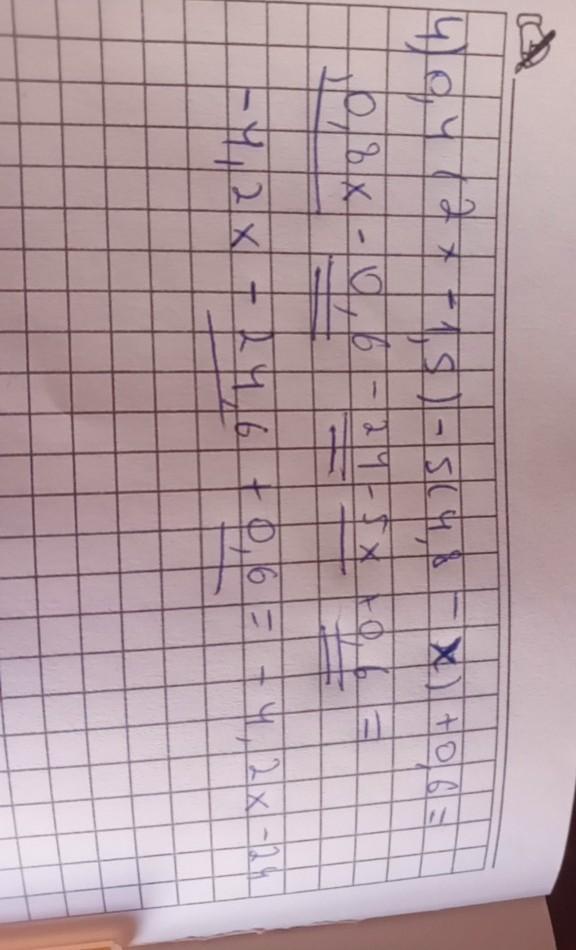 4) 0,4 (2x - 1,5) - 5(4,8 - x) + 0,6 =
0,8x - 0,6 - 24 - 5x + 0,6 =
-4,2x - 24,6 + 0,6 = -4,2x - 24